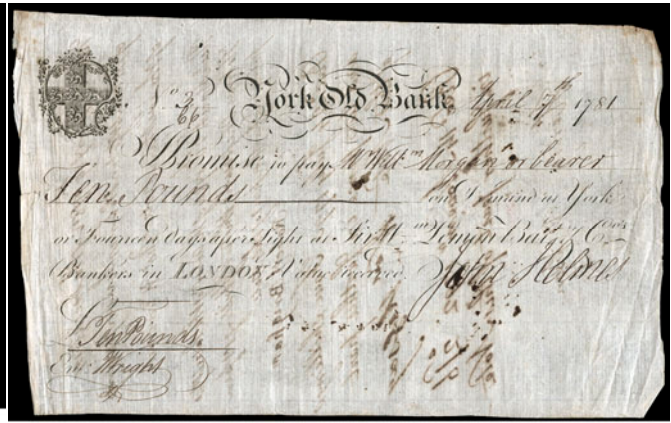 No 3/66 York Old Bank April 7th 1781
I Promise to pay Mr Willm Morgan or bearer
Ten Pounds on Demand in York
or Fourteen Days after Sight at Sir Wm Bart & Comp
Bankers in LONDON Value received John Holmes
£ Ten Pounds
Entd Wright